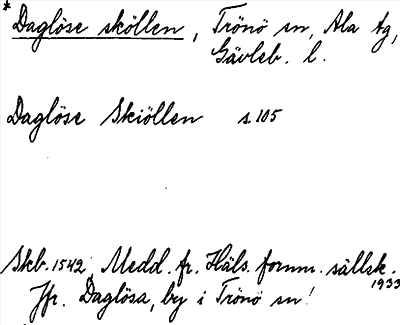 * Daglöse sköllen, Trönö sn, Ala tg,
Gävleb. l.
Daglöse Skiöllen s. 105
Skb. 1542, Medd. fr. Häls. fornm. sällsk.
1933
Jfr. Daglösa, by i Trönö sn!